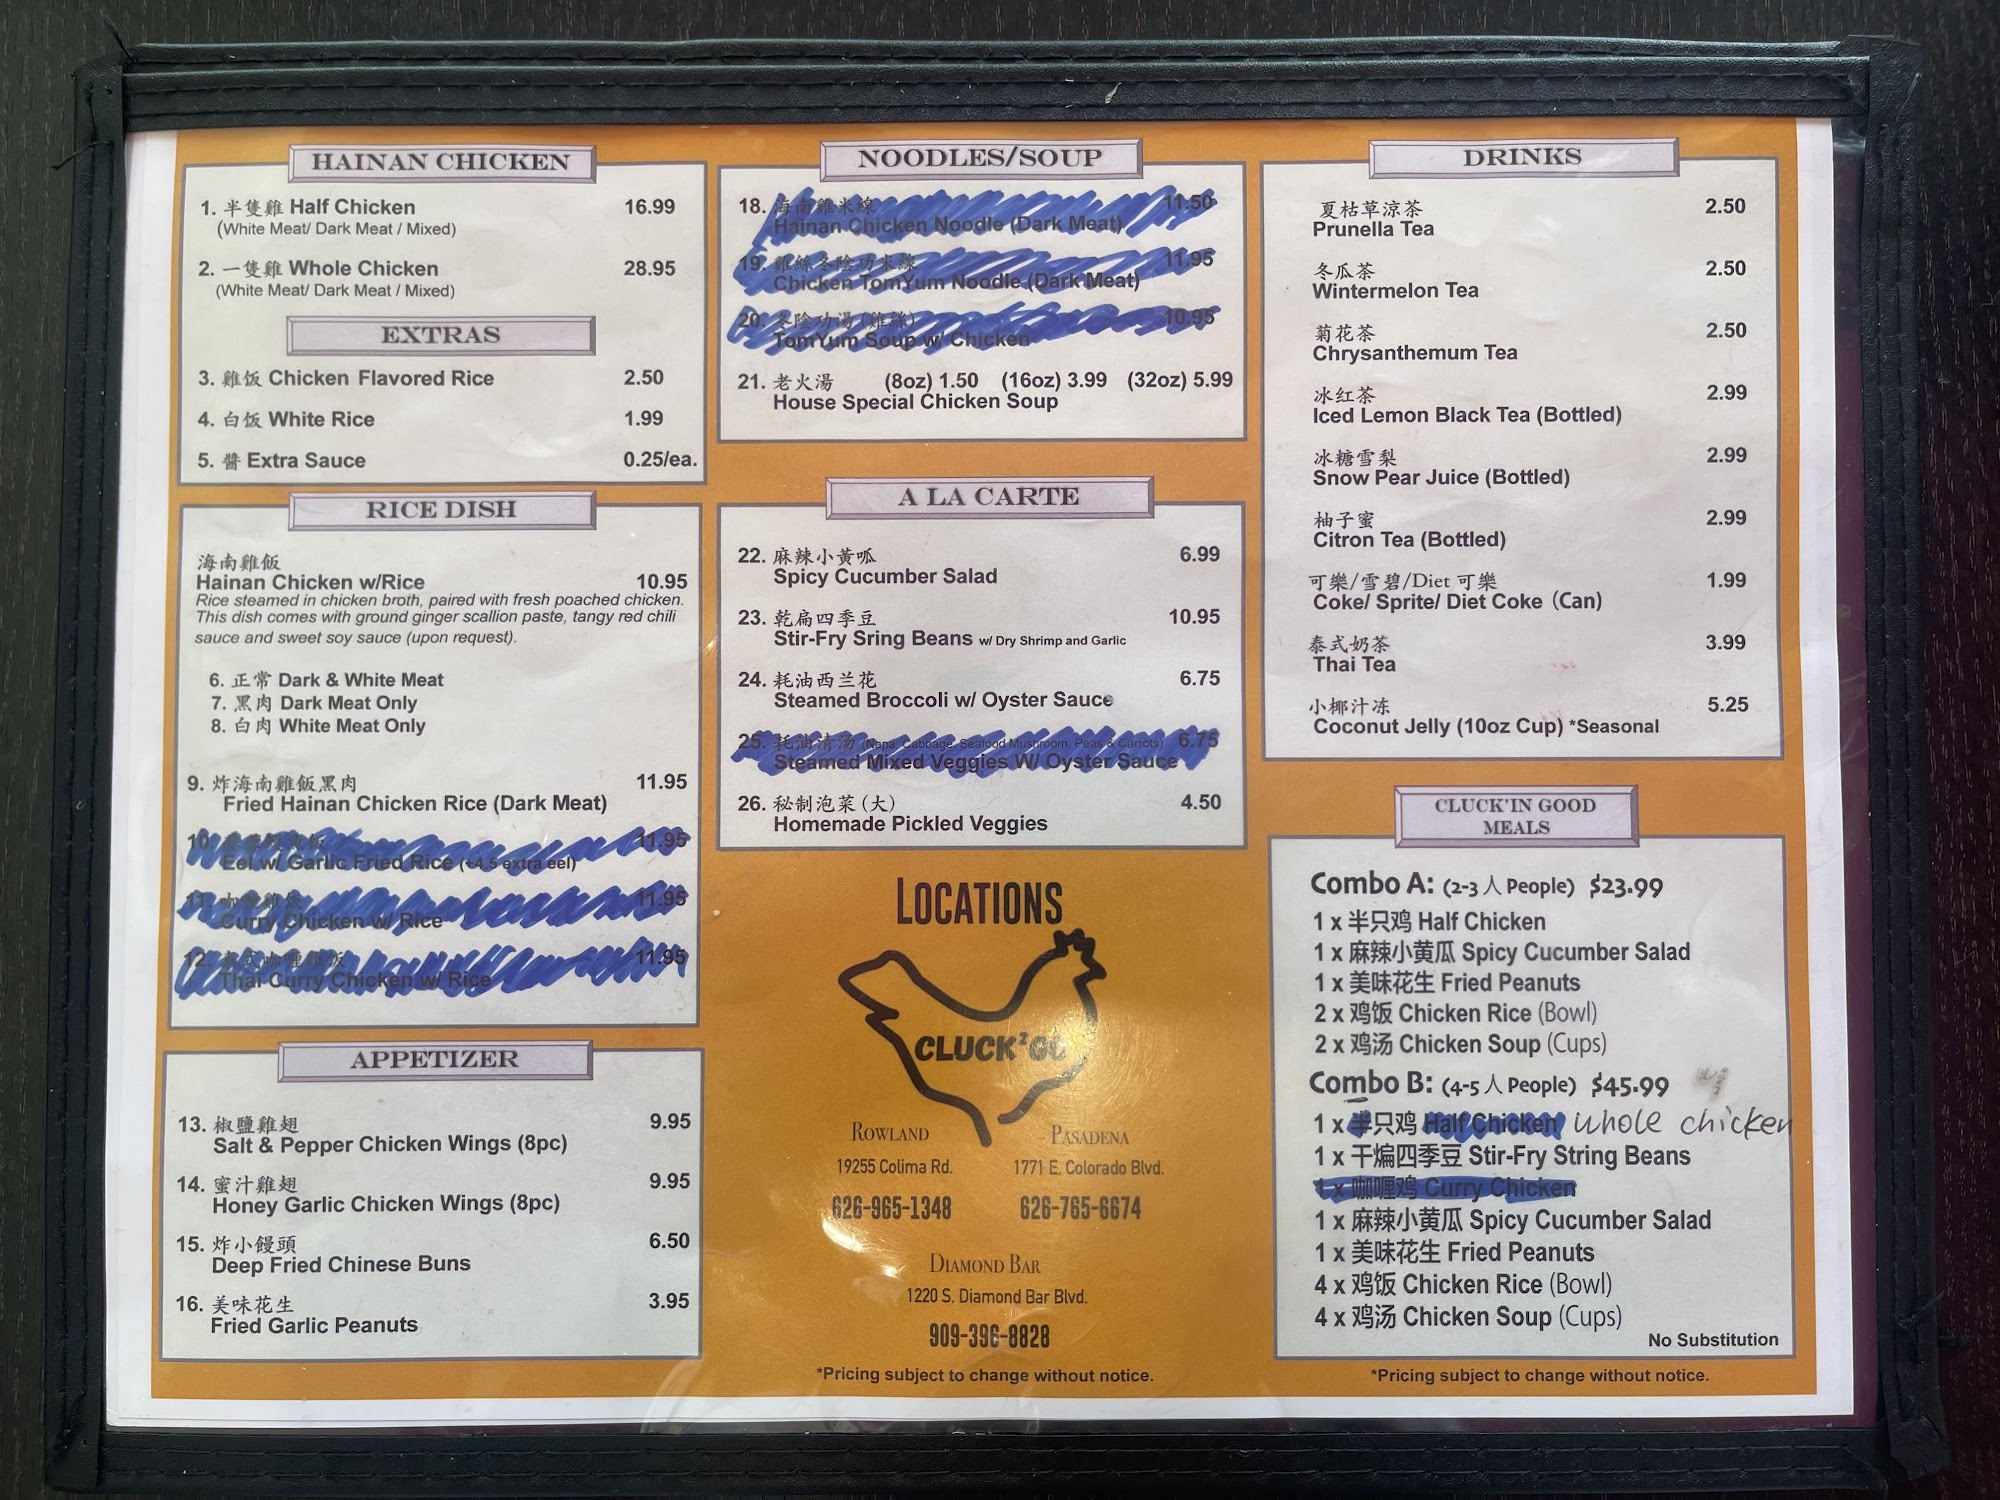 HAINAN CHICKEN
1. 半隻雞 Half Chicken 16.99
(White Meat/ Dark Meat / Mixed)
2. 一隻雞 Whole Chicken 28.95
(White Meat/ Dark Meat / Mixed)
EXTRAS
3. 雞饭 Chicken Flavored Rice 2.50
4. 白饭 White Rice 1.99
5. 醬 Extra Sauce 0.25/ea.
RICE DISH
海南雞飯
Hainan Chicken w/Rice 10.95
Rice steamed in chicken broth, paired with fresh poached chicken.
This dish comes with ground ginger scallion paste, tangy red chili
sauce and sweet soy sauce (upon request).
6. 正常 Dark & White Meat
7. 黑肉 Dark Meat Only
8. 白肉 White Meat Only
9. 炸海南雞飯黑肉 11.95
Fried Hainan Chicken Rice (Dark Meat)
10. 11.95
Eel w/ Garlic Fried Rice (+4.5 extra eel)
11. 咖喱雞饭 11.95
Curry Chicken w/ Rice
12. 泰式咖喱雞饭 11.95
Thai Curry Chicken w/ Rice
APPETIZER
13. 椒鹽雞翅 9.95
Salt & Pepper Chicken Wings (8pc)
14. 蜜汁雞翅 9.95
Honey Garlic Chicken Wings (8pc)
15. 炸小饅頭 6.50
Deep Fried Chinese Buns
16. 美味花生 3.95
Fried Garlic Peanuts
NOODLES/SOUP
18. 海南雞米線 11.50
Hainan Chicken Noodle (Dark Meat)
19. 雞絲冬陰功米線 11.95
Chicken TomYum Noodle (Dark Meat)
20. 冬陰功湯 (雞絲) 10.95
TomYum Soup w/ Chicken
21. 老火湯 (8oz) 1.50 (16oz) 3.99 (32oz) 5.99
House Special Chicken Soup
A LA CARTE
22. 麻辣小黃呱 6.99
Spicy Cucumber Salad
23. 乾扁四季豆 10.95
Stir-Fry Sring Beans w/ Dry Shrimp and Garlic
24. 耗油西兰花 6.75
Steamed Broccoli w/ Oyster Sauce
25. 耗油清汤 (Napa, Cabbage, Seafood Mushroom, Peas & Carrots) 6.75
Steamed Mixed Veggies W/ Oyster Sauce
26. 秘制泡菜 (大) 4.50
Homemade Pickled Veggies
LOCATIONS
CLUCK²GO
ROWLAND
19255 Colima Rd.
626-965-1348
PASADENA
1771 E. Colorado Blvd.
626-765-6674
DIAMOND BAR
1220 S. Diamond Bar Blvd.
909-396-8828
*Pricing subject to change without notice.
DRINKS
夏枯草涼茶 2.50
Prunella Tea
冬瓜茶 2.50
Wintermelon Tea
菊花茶 2.50
Chrysanthemum Tea
冰红茶 2.99
Iced Lemon Black Tea (Bottled)
冰糖雪梨 2.99
Snow Pear Juice (Bottled)
柚子蜜 2.99
Citron Tea (Bottled)
可樂/雪碧/Diet 可樂 1.99
Coke/ Sprite/ Diet Coke (Can)
泰式奶茶 3.99
Thai Tea
小椰汁冻 5.25
Coconut Jelly (10oz Cup) *Seasonal
CLUCK'IN GOOD
MEALS
Combo A: (2-3 人 People) $23.99
1 x 半只鸡 Half Chicken
1 x 麻辣小黄瓜 Spicy Cucumber Salad
1 x 美味花生 Fried Peanuts
2 x 鸡饭 Chicken Rice (Bowl)
2 x 鸡汤 Chicken Soup (Cups)
Combo B: (4-5 人 People) $45.99
1 x 半只鸡 Half Chicken whole chicken
1 x 干煸四季豆 Stir-Fry String Beans
1 x 咖喱鸡 Curry Chicken
1 x 麻辣小黄瓜 Spicy Cucumber Salad
1 x 美味花生 Fried Peanuts
4 x 鸡饭 Chicken Rice (Bowl)
4 x 鸡汤 Chicken Soup (Cups)
No Substitution
*Pricing subject to change without notice.